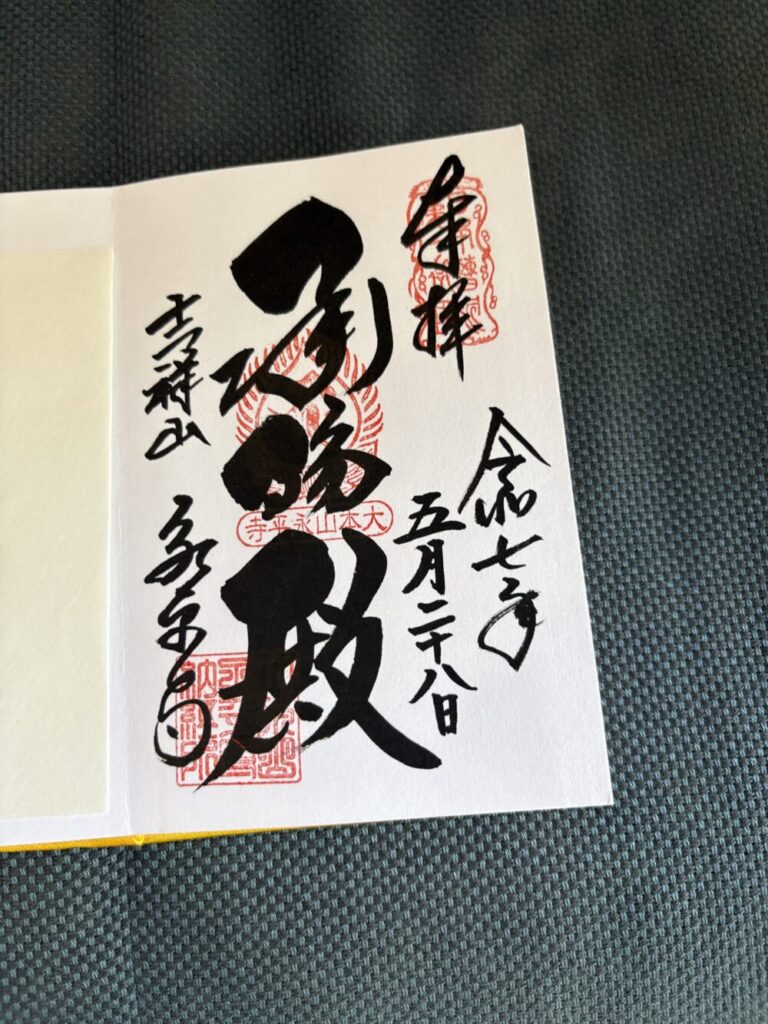 奉拝
令和七年
五月二十八日
承陽殿
大本山永平寺
吉祥山 永平寺